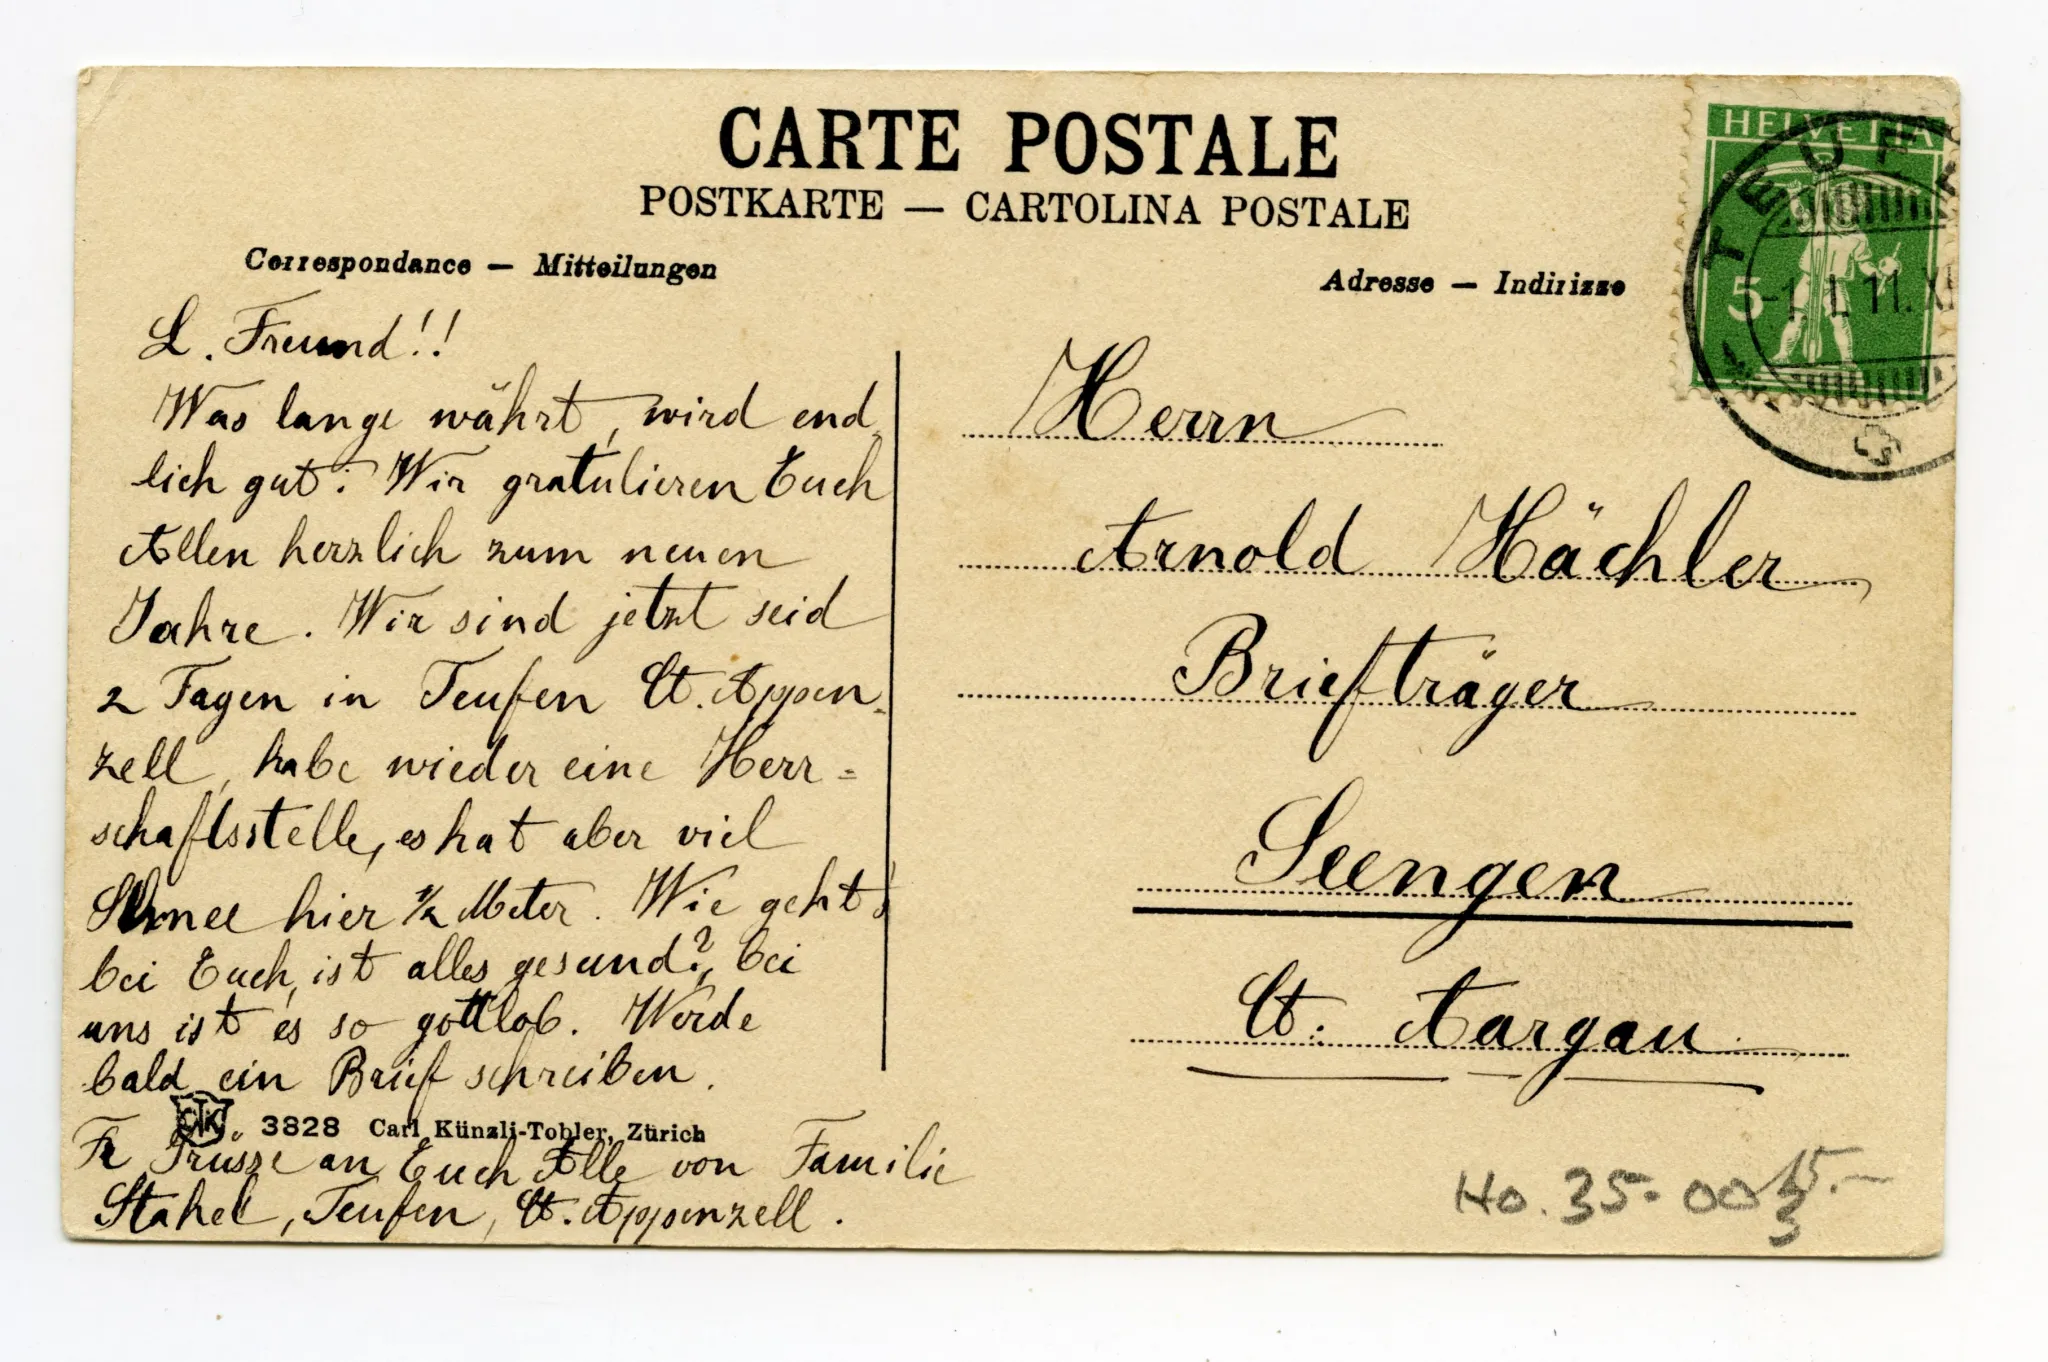 CARTE POSTALE
POSTKARTE — CARTOLINA POSTALE
Correspondance — Mitteilungen
Adresse — Indirizzo
L. Freund!!
Was lange währt, wird end-
lich gut. Wir gratulieren Euch
Allen herzlich zum neuen
Jahre. Wir sind jetzt seid
2 Tagen in Teufen Ct. Appen-
zell, habe wieder eine Herr-
schaftsstelle, es hat aber viel
Schnee hier ½ Meter. Wie geht's
bei Euch, ist alles gesund?, bei
uns ist es so gottlob. Werde
bald ein Brief schreiben.
CKT 3828 Carl Künzli-Tobler, Zürich
Fr Grüsse an Euch Alle von Familie
Stahel, Teufen, Ct. Appenzell.
HELVETIA
5
TEUFEN
-1.I.11.XI
Herrn
Arnold Hächler
Briefträger
Seengen
Ct. Aargau.
Ho. 35-00 15.-
3